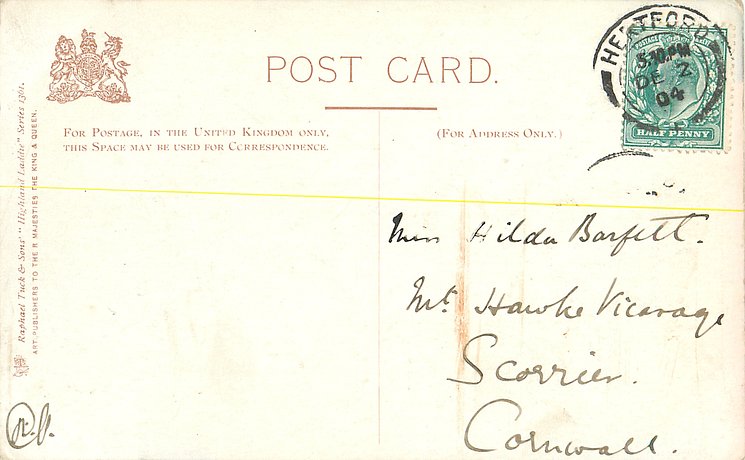 POST CARD.
FOR POSTAGE, IN THE UNITED KINGDOM ONLY,
THIS SPACE MAY BE USED FOR CORRESPONDENCE.
(FOR ADDRESS ONLY.)
HERTFORD
5.30.PM
DE 2
04
POSTAGE
HALF PENNY
Miss Hilda Barfett.
Mt. Hawke Vicarage
Scorrier.
Cornwall.
Raphael Tuck & Sons' "Highland Laddie" Series 1361.
ART PUBLISHERS TO THEIR MAJESTIES THE KING & QUEEN.